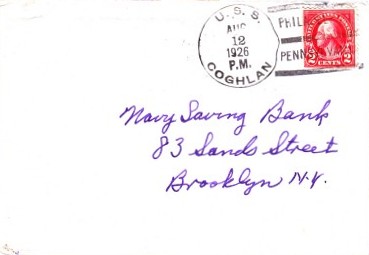 U. S. S.
AUG
12
1926
P.M.
COGHLAN
PHILA
PENNS
UNITED STATES POSTAGE
2 CENTS 2
Navy Saving Bank
83 Sands Street
Brooklyn N.Y.